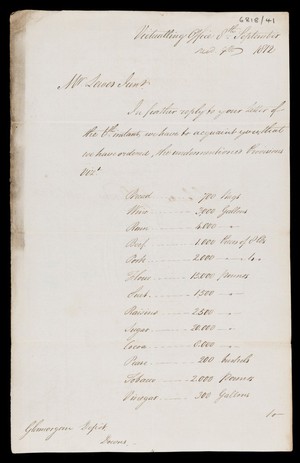 6818/41
Victualling Office 8th September
1812
Mr Lewes Junr
In further reply to your letter of
the 6th instant, we have to acquaint you that
we have ordered, the undermentioned Provisions
Vizt
Bread 700 bags
Wine 3,000 Gallons
Rum 4.000 "
Beef 1.000 Pieces of 8 lb
Pork 2.000 "
Flour 15.000 pounds
Suet 1500 "
Raisins 2500 "
Sugar 20.000 "
Cocoa 6.000 "
Pease 200 bushels
Tobacco 2.000 Pounds
Vinegar 300 Gallons
to
Glamorgan Depot
Downs